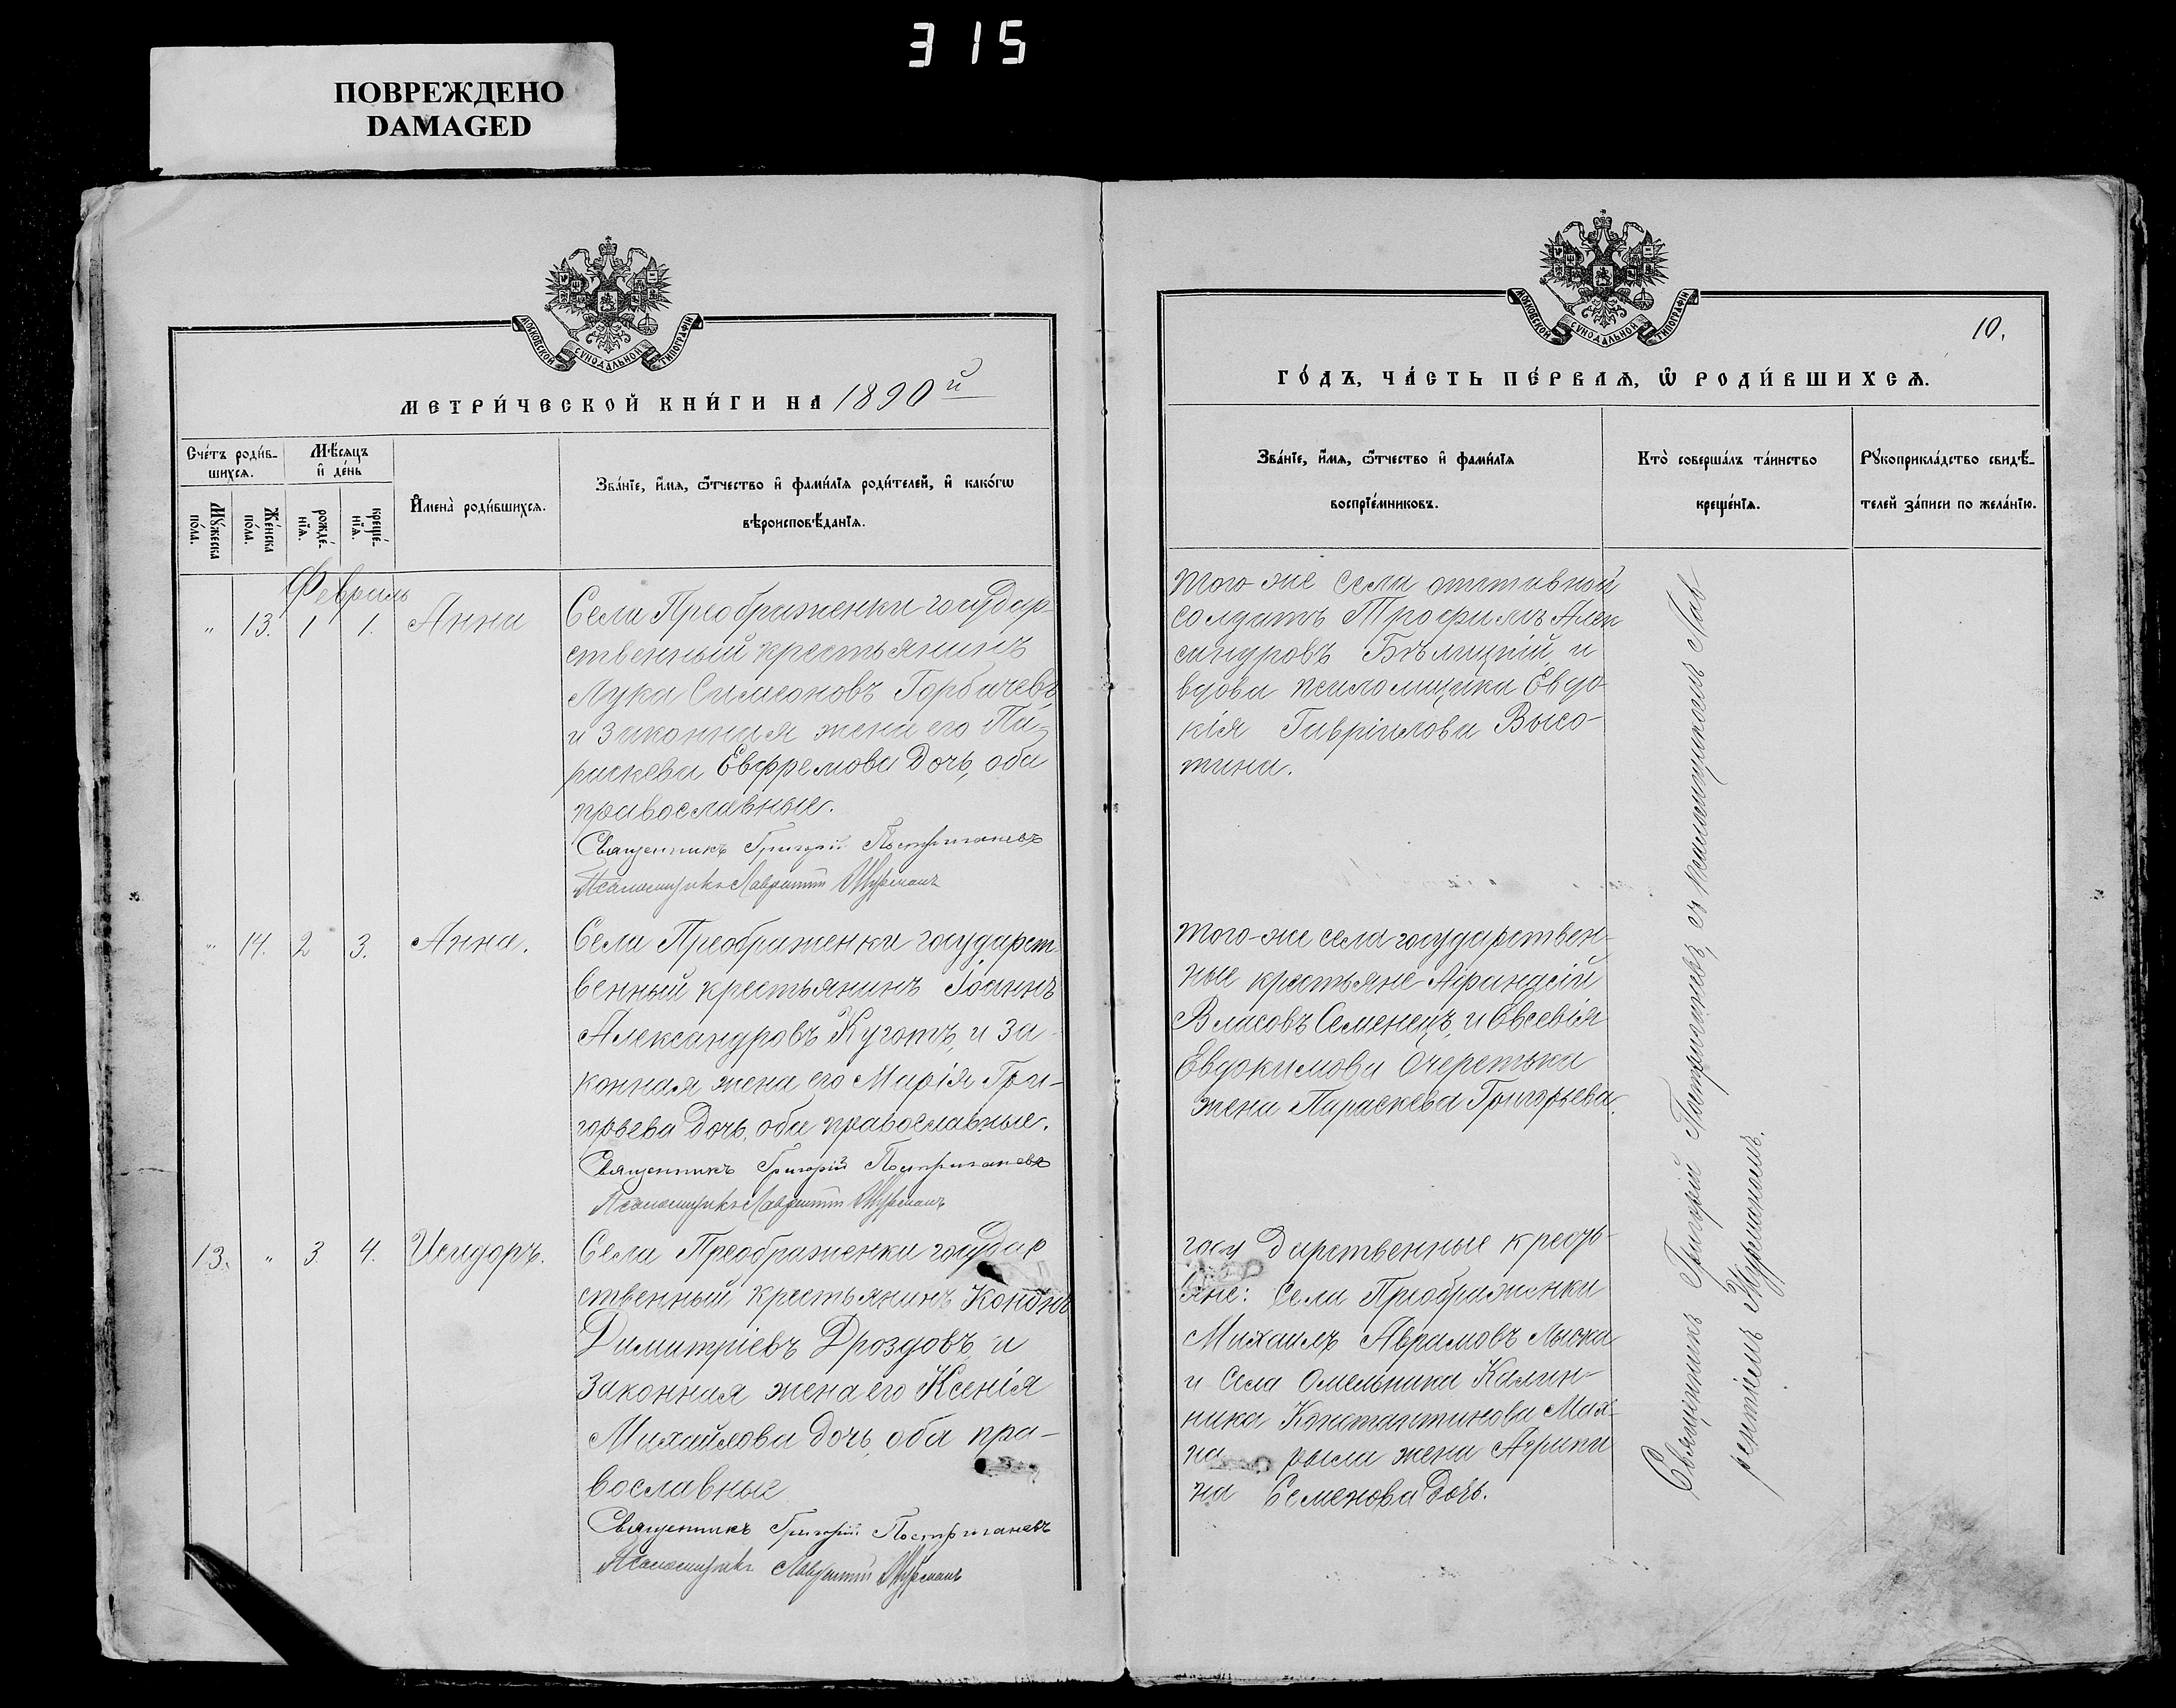 315
ПОВРЕЖДЕНО
DAMAGED
МОСКОВСКОЙ СѴНОДАЛЬНОЙ ТИПОГРАФІИ
МЕТРИ́ЧЕСКОЙ КНИ́ГИ НА 1890й
Сче́тъ роди́в-
шихсѧ.
Мѣ́сѧцъ
и҆ де́нь
Мꙋ́жеска
по́ла.
Же́нска
по́ла.
рожде́-
нїѧ.
креще́-
нїѧ.
И҆мена̀ роди́вшихсѧ.
Зва́нїе, и҆́мѧ, ѻ҆́тчество и҆ фами́лїѧ роди́телей, и҆ како́гѡ
вѣроисповѣ́данїѧ.
Февраль
" 13. 1 1. Анна
Села Преображенки государ-
ственный крестьянинъ
Лука Симеоновъ Горбачевъ,
и законная жена его Па-
раскева Евфремова дочь, оба
православные.
Священникъ Григорій Постригачевъ
Псаломщикъ Лаврентій
" 14. 2 3. Анна.
Села Преображенки государст
венный крестьянинъ Іоаннъ
Александровъ Куготъ, и за-
конная жена его Марія Гри-
горьева дочь, оба православные.
Священникъ Григорій Постригачевъ
Псаломщикъ Лаврентій
13. " 3 4. Исидоръ.
Села Преображенки государ
ственный крестьянинъ Кононъ
Димитріевъ Дроздовъ, и
законная жена его Ксенія
Михайлова дочь, оба пра-
вославные
Священникъ Григорій Постригачевъ
Псаломщикъ Лаврентій
МОСКОВСКОЙ СѴНОДАЛЬНОЙ ТИПОГРАФІИ
10.
ГО́ДЪ, ЧА́СТЬ ПЕ́РВАѦ, Ѽ РОДИ́ВШИХСѦ.
Зва́нїе, и҆́мѧ, ѻ҆́тчество и҆ фами́лїѧ
воспрїе́мниковъ.
Кто̀ соверша́лъ та́инство
креще́нїѧ.
Рꙋкоприкла́дство свидѣ́-
телей за́писи по жела́нїю.
того-же села отставной
солдатъ Трофимъ Алек
сандровъ Бѣлицкій, и
вдова псаломщика Евдо-
кія Гавріилова Высо-
тина.
того-же села государствен-
ные крестьяне
Власовъ Семенецъ, и Евсевія
Евдокимова Очеретька
жена Параскева Григорьева.
государственные кресть-
яне: села Преображенки
Михаилъ Аврамовъ
и села Омельника Калин-
ника Константинова
жена Агрипи
на Семенова дочь.
Священникъ Григорій Постригачевъ, съ псаломщикомъ Лав
рентіемъ